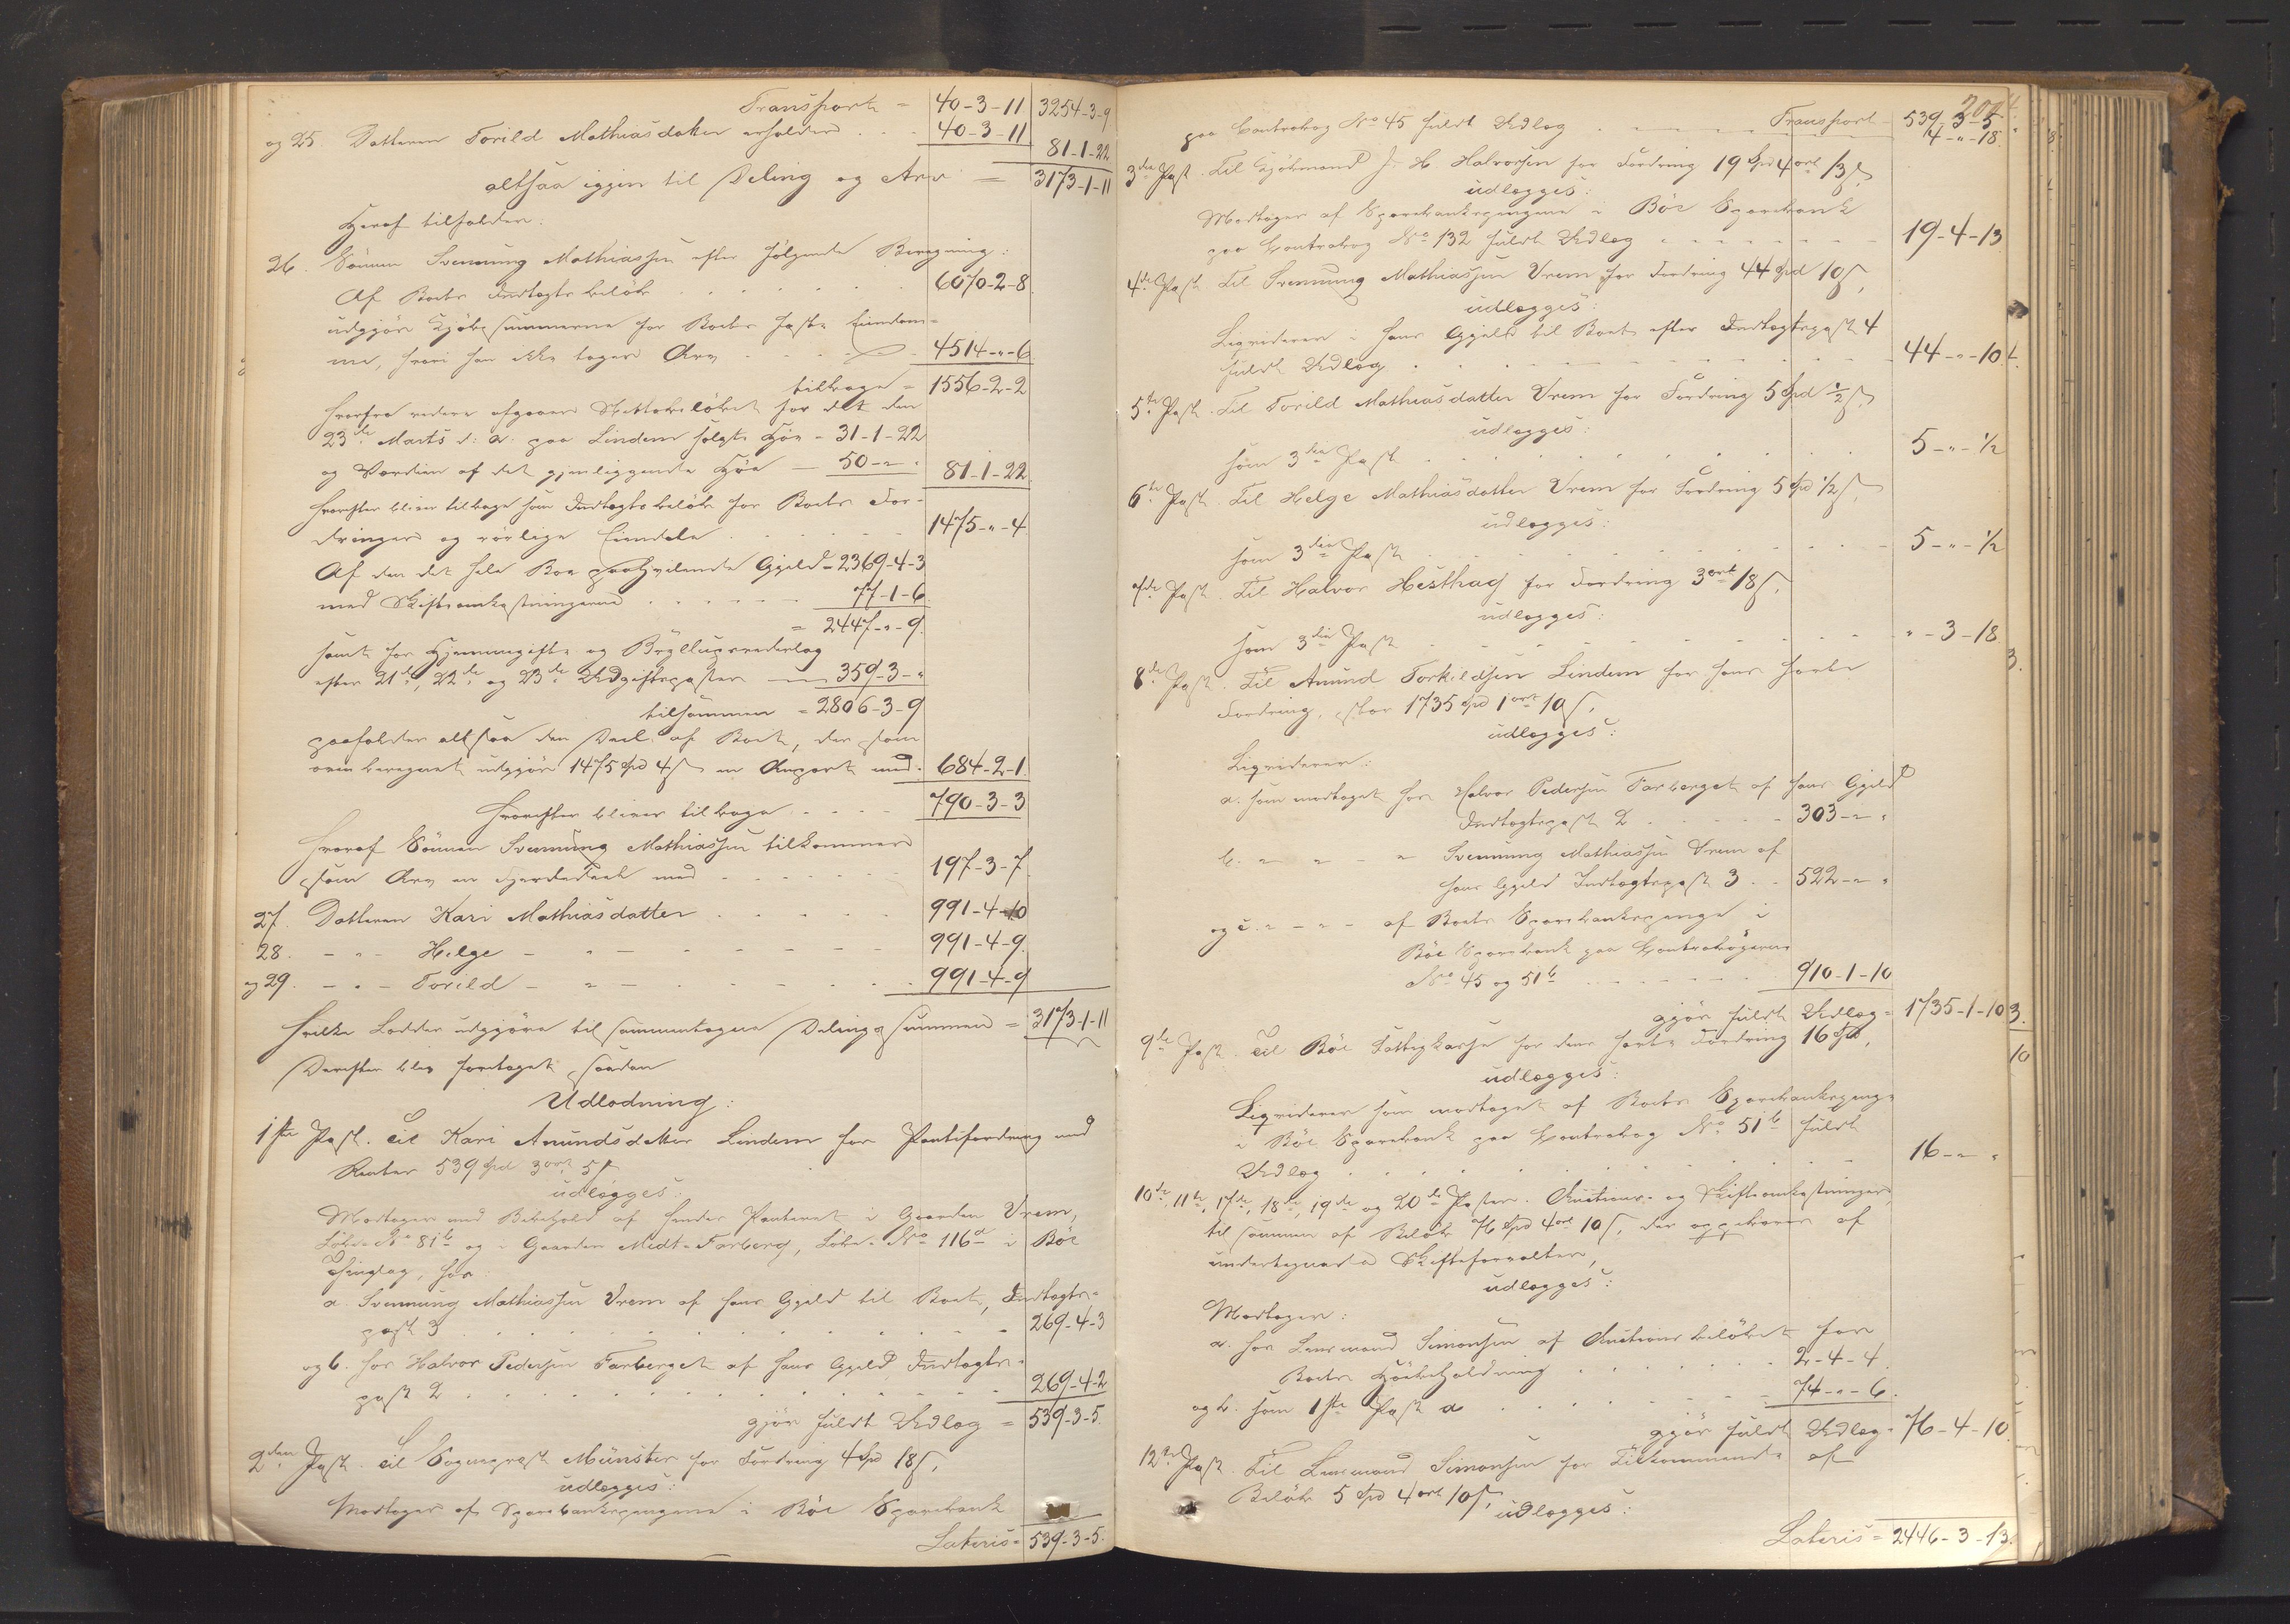 Transport = 40-3-11 3254-3-9
og 25. Datteren Torild Mathiasdatter erholder . . . 40-3-11 81-1-22
altsaa igjen til Deling og Arv = 3173-1-11
Heraf tilfalder:
26. Sønnen Svennung Mathiassen efter følgende Beregning:
Af Boets Indtægtsbeløb . . . . . 6070-2-8
udgjøre Kjøbesummerne for Boets faste Eiendom-
me, hvori han ikke tager Arv . . . . 4514-"-6
tilbage = 1556-2-2
hvorfra videre afgaaer Netto beløbet for det den
23de Marts d: A: paa Lindem solgte Høe = 31-1-22
og Værdien af det gjenliggende Høe — 50-"-" 81-1-22
hvorefter bliver tilbage som Indtægtsbeløb for Boets For-
dringer og rørlige Eiendele . . . . . 1475-"-4
Af den det hele Boe paahvilende Gjæld = 2369-4-3
med Skifteomkostningerne . . . . . 77-1-6
= 2447-"-9
samt for Hjemmegifte og Bryllupsvederlag
efter 21de, 22de og 23de Udgiftsposter — 359-3-"
tilsammen = 2806-3-9
paafalder altsaa den Deel af Boet, der som
oven beregnet udgjør 1475 Spd 4 s en Anpart med . 684-2-1
hvorefter bliver tilbage . . . . 790-3-3
hvoraf Sønnen Svennung Mathiassen tilkommer
som Arv en Fjerdedeel med . . . . . 197-3-7
27. Datteren Kari Mathiasdatter . . . . . 991-4-10
28. - " - Helge - " - . . . . . 991-4-9
og 29. - " - Torild - " - . . . . . 991-4-9
hvilke Lodder udgjøre til sammentagne Delingssummen = 3173-1-11
Derefter blev foretaget saadan
Udlodning:
1ste Post. Til Kari Amundsdatter Lindem for Pantefordring med
Renter 539 Spd 3 ort 5 s
udlægges:
Modtager med Bibehold af hendes Panteret i Gaarden Vrem,
Løbe-No 81b og i Gaarden Midt-Forberg, Løbe-No 116a i Bøe
Thinglag, hos
a. Svennung Mathiassen Vrem af hans Gjæld til Boet, Indtægts-
post 3 . . . . . . . . . . 269-4-3
og b. hos Halvor Pedersen Farberget af hans Gjæld, Indtægts-
post 2 . . . . . . . . . . 269-4-2
gjør fuldt Udlæg = 539-3-5.
2den Post. Til Sogneprest Münster for Fordring 4 Spd 18 s,
udlægges:
Modtager af Sparebankpengene i Bøe Sparebank
Lateris = 539-3-5.
204.
Transport 539-3-5
paa Contrabog No 45 fuldt Udlæg . . . . . 4-"-18.
3die Post. Til Kjøbmand J. H. Halvorsen for Fordring 19 Spd 4 ort 13 s,
udlægges:
Modtager af Sparebankpengene i Bøe Sparebank
paa Contrabog No 132 fuldt Udlæg . . . . . 19-4-13
4de Post. Til Svennung Mathiassen Vrem for Fordring 44 Spd 10 s,
udlægges:
Liqviderer i hans Gjæld til Boet efter Indtægtspost 4
fuldt Udlæg . . . . . . . . . . 44-"-10
5te Post. Til Torild Mathiasdatter Vrem for Fordring 5 Spd ½ s,
udlægges:
som 3die Post . . . . . . . . . . 5-"-½
6te Post. Til Helge Mathiasdatter Vrem for Fordring 5 Spd ½ s,
udlægges:
som 3die Post . . . . . . . . . . 5-"-½
7de Post. Til Halvor Hesthag for Fordring 3 ort 18 s,
udlægges:
som 3die Post . . . . . . . . . . "-3-18.
8de Post. Til Amund Torkildsen Lindem for hans hævde
Fordring, stor 1735 Spd 1 ort 10 s,
udlægges:
Liqviderer:
a. som modtaget hos Halvor Pedersen Farberget af hans Gjæld
Indtægtspost 2 . . . . . 303-"-"
b. " - " - " Svennung Mathiassen Vrem af
hans Gjæld Indtægtspost 3 . . 522-"-"
og c. " - " - af Boets Sparebankpenge i
Bøe Sparebank paa Contrabøgerne
No 45 og 51b . . . . . 910-1-10
gjør fuldt Udlæg = 1735-1-10
9de Post. Til Bøe Fattigkasse for dens hævde Fordring 16 Spd,
udlægges:
Liqviderer som modtaget af Boets Sparebankpenge
i Bøe Sparebank paa Contrabog No 51b fuldt
Udlæg . . . . . . . . . . 16-"-"
10de, 11te, 17de, 18de, 19de og 20de Poster. Auctions- og Skifteomkostninger,
til sammen af Beløb 76 Spd 4 ort 10 s, der oppebæres af
undertegnede Skifteforvalter,
udlægges:
Modtager:
a. hos Lensmand Simonsen af Auctionsbeløbet for
Boets Høebeholdning . . . . . 2-4-4.
og b. som 1ste Post a . . . . . 74-"-6.
gjør fuldt Udlæg = 76-4-10.
12te Post. Til Lensmand Simonsen for Tilkommende af
Beløb 5 Spd 4 ort 10 s,
udlægges:
Lateris = 2446-3-13.